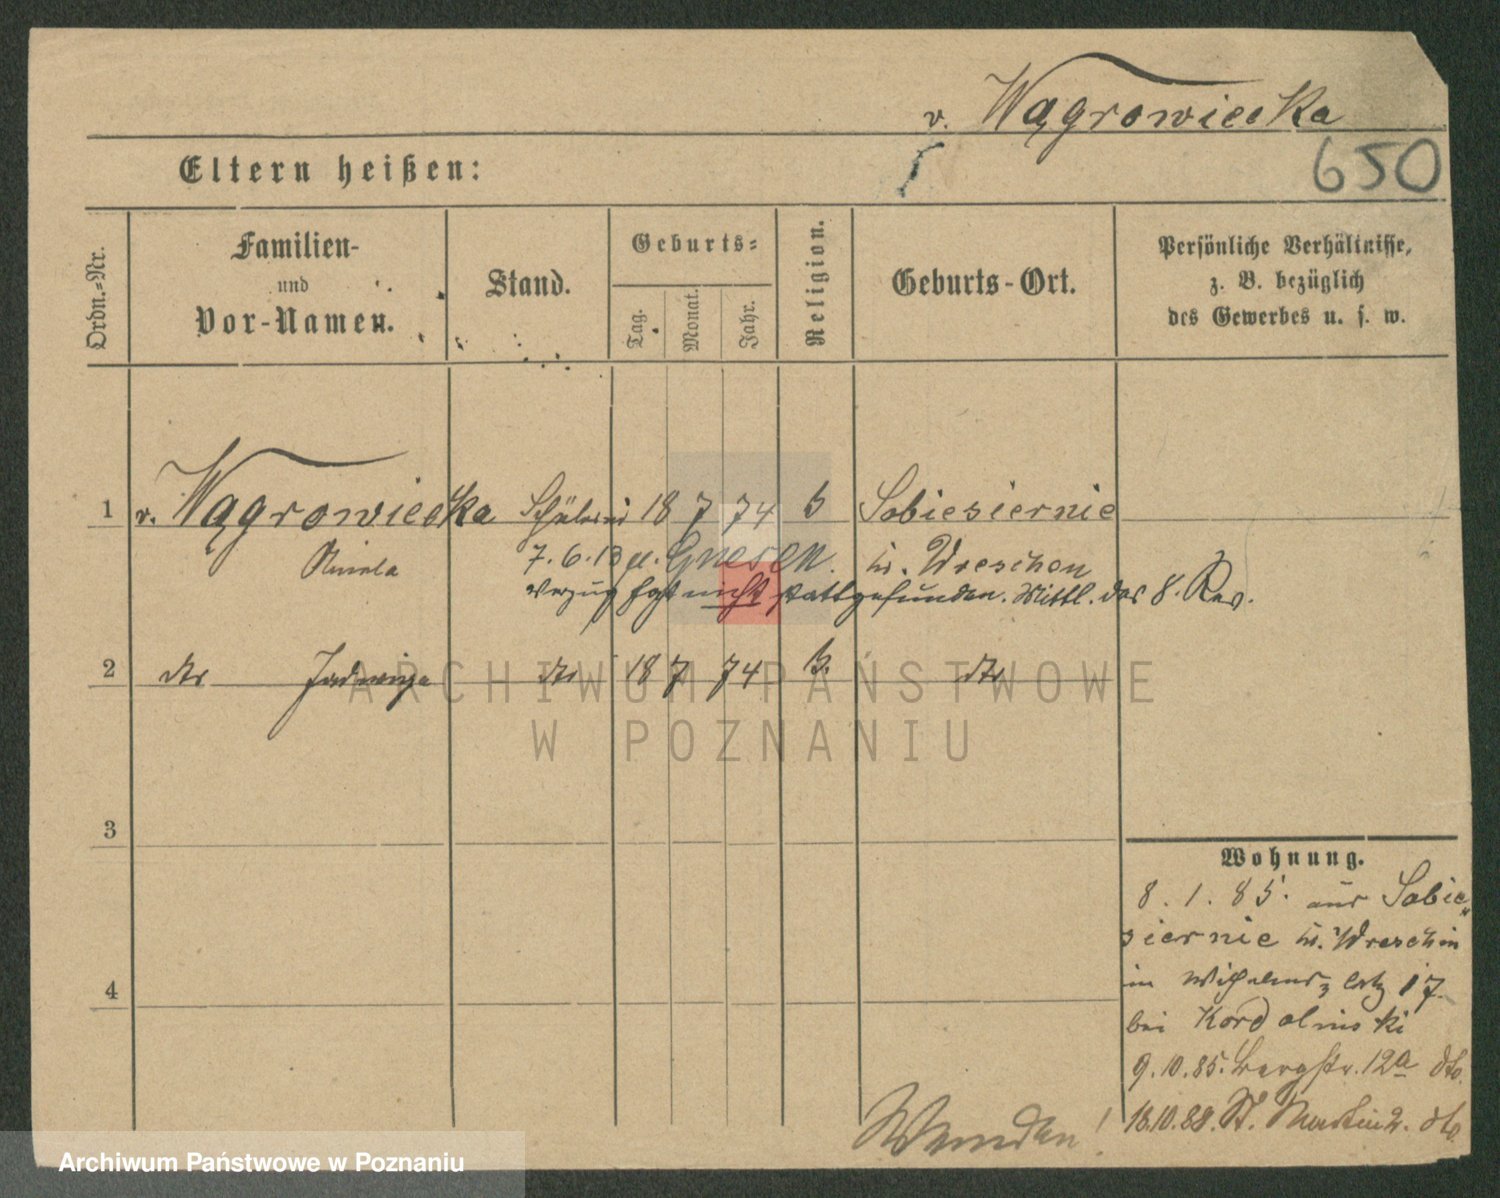 v. Wągrowiecka
650
Eltern heißen:
Ordn.-Nr.
Familien-
und
Vor-Namen.
Stand.
Geburts-
Tag.
Monat.
Jahr.
Religion.
Geburts-Ort.
Persönliche Verhältnisse,
z. B. bezüglich
des Gewerbes u. s. w.
1 v. Wągrowiecka Schülerin 18 7 74 Sobiesiernie
7.6.13 Gnesen. Kr. Wreschen
Verzug hat nicht stattgefunden. Mittl. des 8. Rev.
2 dto Jadwiga dto 18 7 74 dto
3
4
Wohnung.
8. 1. 85. aus Sobie
siernie Kr. Wreschen
in Wilhelmsplatz 17
bei Kordolinski
9.10.85. Bergstr. 12a dto.
18.10.88. St. Martin 2. dto.
Wenden!
ARCHIWUM PAŃSTWOWE
W POZNANIU
Archiwum Państwowe w Poznaniu